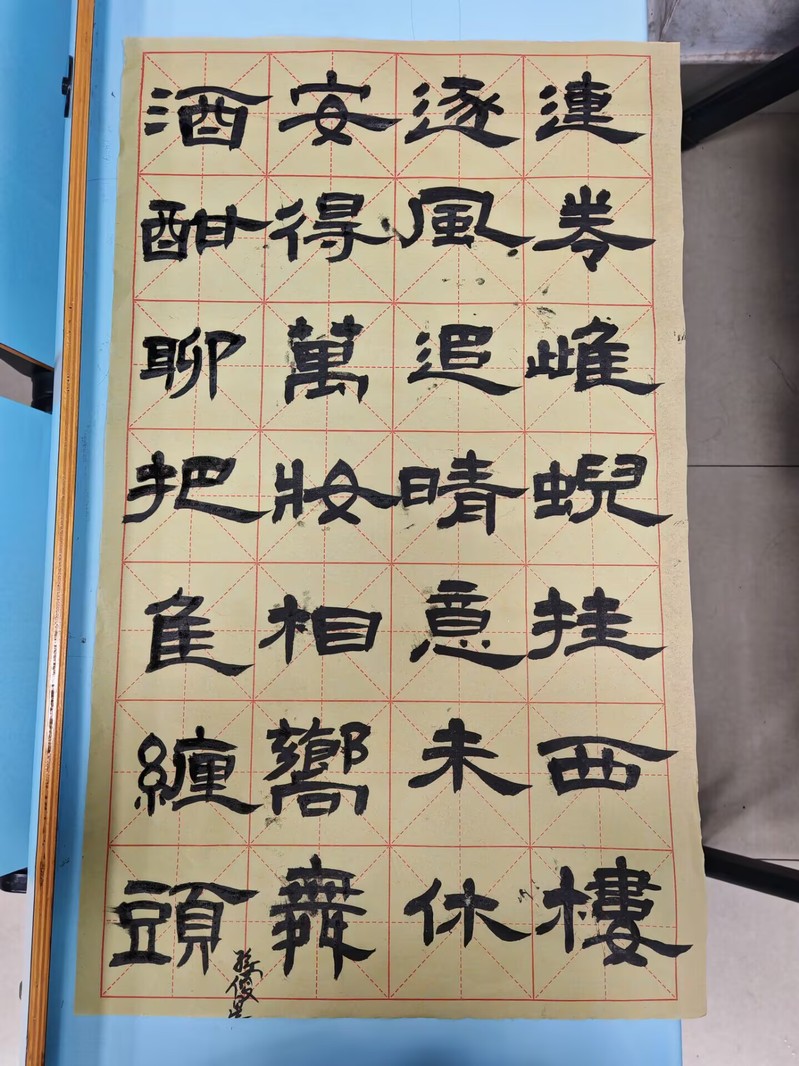 連卷雌蜺挂西樓
逐風追晴意未休
安得萬妝相嚮舞
酒酣聊把隹纏頭